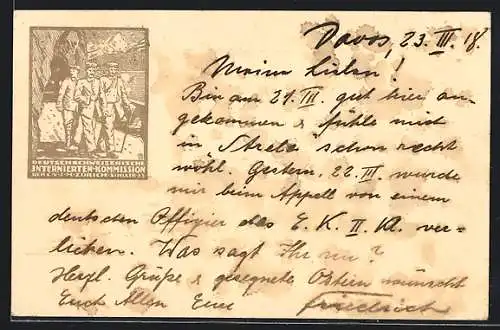 Davos, 23. III. 18.
Meine Lieben!
Bin am 21. III. gut hier an-
gekommen & fühle mich
in, Strela schon recht
wohl. Gestern, 22. III. wurde
mir beim Appell von einem
deutschen Offizier das E. K. II. Kl. ver-
liehen. Was sagt Ihr nu?
Herzl. Grüße & gesegnete Ostern wünscht
Euch Allen Euer Friedrich
DEUTSCH-SCHWEIZERISCHE
INTERNIERTEN-KOMMISSION